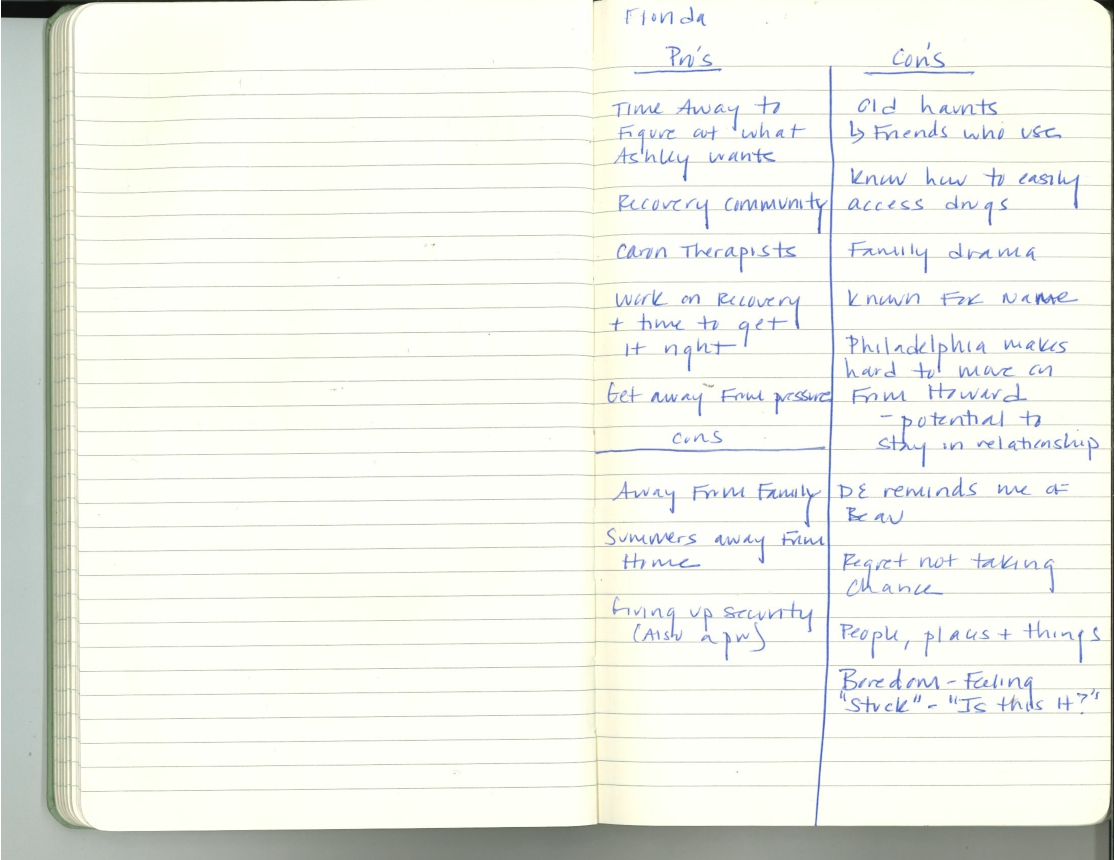 Florida
Pro's
Time Away to
Figure out what
Ashley wants
Recovery community
Caron Therapists
Work on Recovery
+ time to get
it right
Get away From pressure
cons
Away From Family
Summers away From
Home
Giving up security
(Also a pro)
Con's
Old haunts
↳ Friends who use
Know how to easily
access drugs
Family drama
Known For Name
Philadelphia makes
hard to move on
From Howard
- potential to
stay in relationship
DE reminds me of
Beau
Regret not taking
Chance
People, places + things
Boredom - Feeling
"Stuck" - "Is this it?"